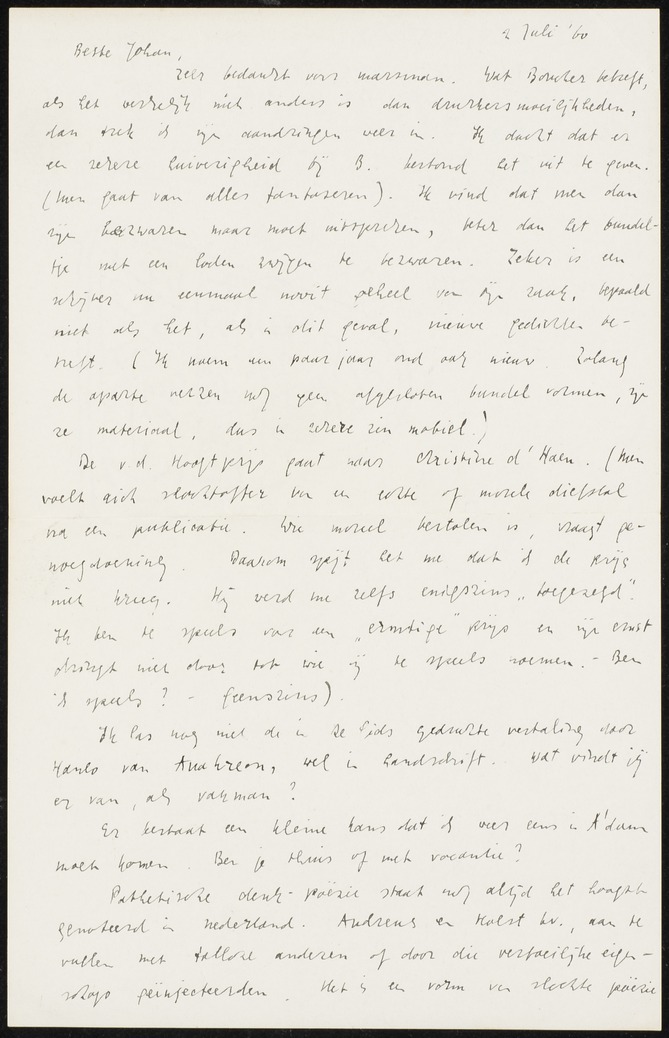 2 Juli '60
Beste Johan,
Zeer bedankt voor marsman. Wat Boucher betreft,
als het werkelijk niet anders is dan drukkersmoeilijkheden,
dan trek ik mijn aandringen weer in. Ik dacht dat er
een zekere huiverigheid bij B. bestond het uit te geven.
(men gaat van alles fantaseren). Ik vind dat men dan
zijn bezwaren maar moet uitspreken, beter dan het bundel-
tje met een loden zwijgen te bezwaren. Zeker is een
schrijver nu eenmaal nooit geheel van zijn zaak, bepaald
niet als het, als in dit geval, nieuwe gedichten be-
treft. (Ik noem een paar jaar oud ook nieuw. Zolang
de aparte verzen nog geen afgesloten bundel vormen, zijn
ze materiaal, dus in zekere zin mobiel.)
De v.d. Hoogtprijs gaat naar Christine d'Haen. (men
voelt zich slachtoffer van een echte of morele diefstal
na een publicatie. Wie moreel bestolen is, vraagt ge-
noegdoening. Daarom spijt het me dat ik de prijs
niet kreeg. Hij werd me zelfs enigszins „toegezegd".
Ik ben te speels voor een „ernstige" prijs en mijn ernst
dringt niet door tot wie mij te speels noemen. - Ben
ik speels? - Geenszins).
Ik las nog niet de in De Gids gedrukte vertaling door
Hanlo van Anakreon, wel in handschrift. Wat vindt jij
er van, als vakman?
Er bestaat een kleine kans dat ik weer eens in A'dam
moet komen. Ben je thuis of met vacantie?
Pathetische denk-poëzie staat nog altijd het hoogst
genoteerd in nederland. Andreus en Holst bv., aan te
vullen met talloze anderen of door die verfoeilijke eigen-
schap geïnfecteerden. Het is een vorm van slechte poëzie